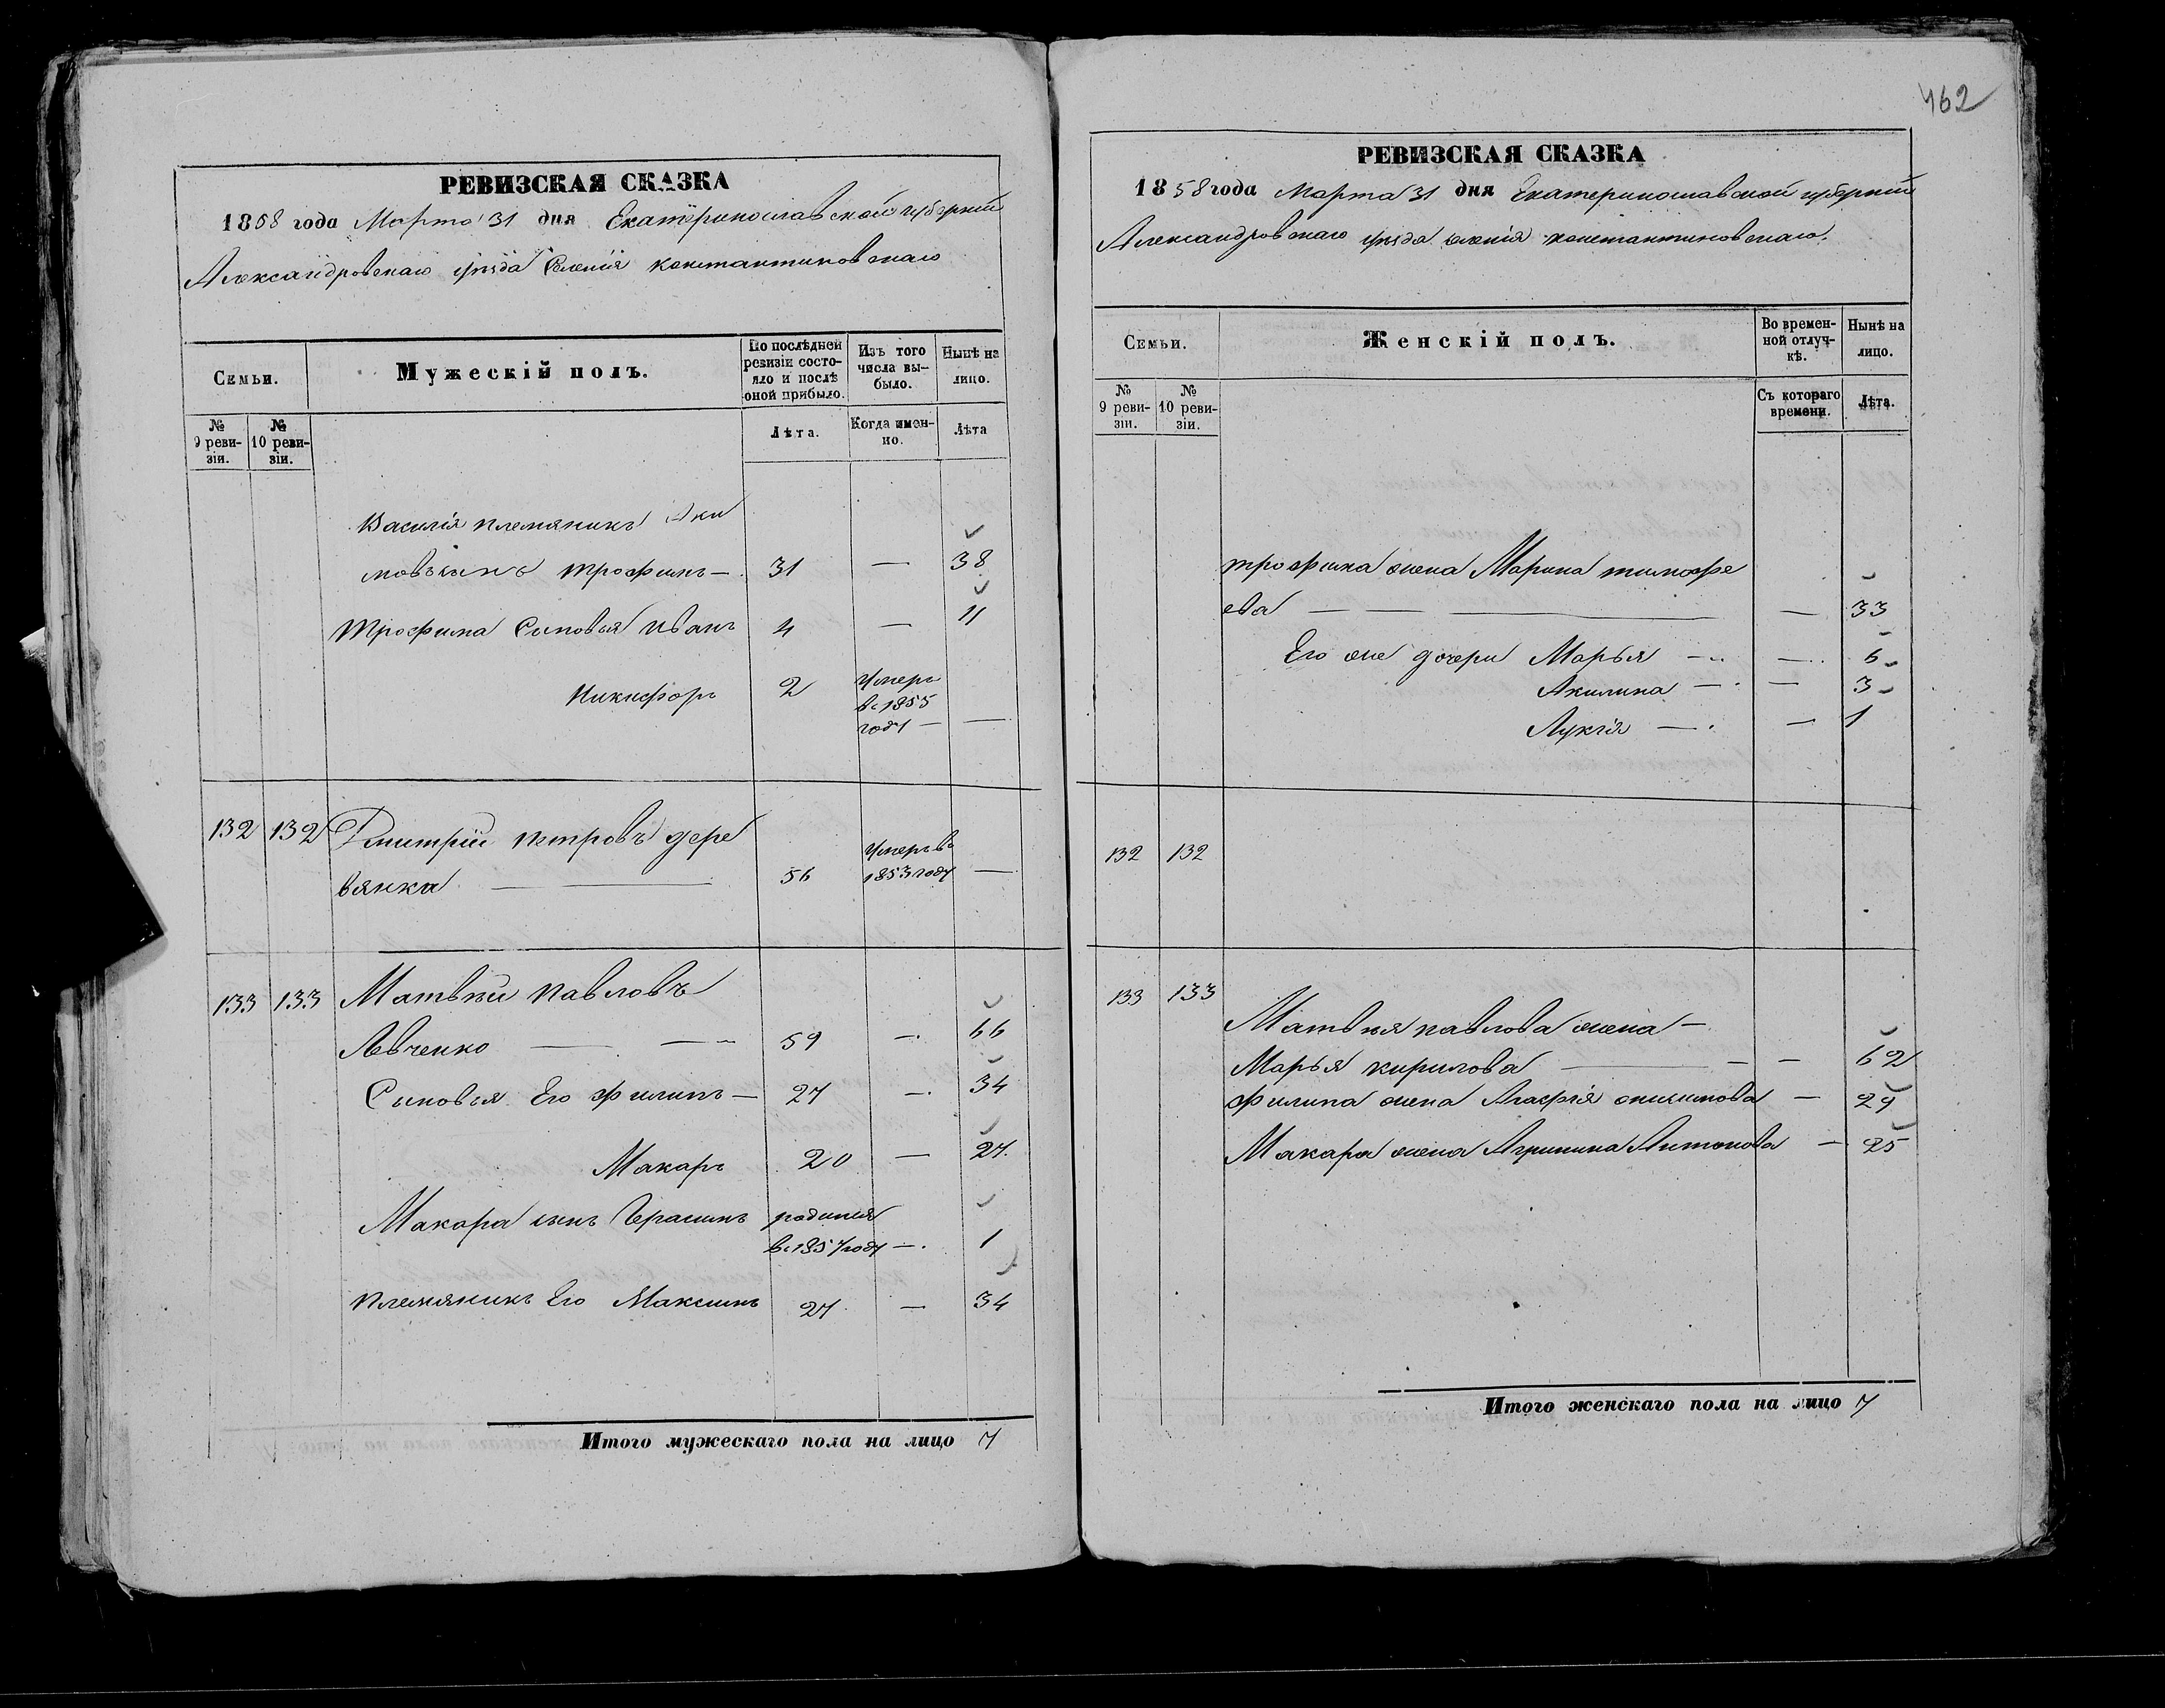 462
РЕВИЗСКАЯ СКАЗКА
1858 года Марта 31 дня Екатеринославской губерніи
Александровскаго уѣзда Селенія константиновскаго
Семьи.
Мужескій полъ.
По послѣдней ревизіи состояло и послѣ оной прибыло.
Изъ того числа выбыло.
Нынѣ на лицо.
№ 9 ревизіи.
№ 10 ревизіи.
Лѣта.
Когда именно.
Лѣта
Василія племяникъ Аки
мовъ сынъ трофимъ — 31 — 38
Трофима Сыновья иванъ 4 — 11
никифоръ 2 Умеръ
въ 1855
году — —
132 132 Дмитрій петровъ дере
вянка — 56 Умеръ въ
1853 году —
133 133 Матвѣй павловъ
Левченко — — 59 — 66
Сыновья Его филипъ — 27 — 34
Макаръ 20 — 27.
Макара сынъ Герасимъ родился
въ 1857 году — 1
племяникъ Его Максимъ 27 — 34
Итого мужескаго пола на лицо 7
РЕВИЗСКАЯ СКАЗКА
1858 года Марта 31 дня Екатеринославской губерніи
Александровскаго уѣзда селенія константиновскаго.
Семьи.
Женскій полъ.
Во временной отлучкѣ.
Нынѣ на лицо.
№ 9 ревизіи.
№ 10 ревизіи.
Съ котораго времени.
Лѣта.
трофима жена Марина тимофе
ева — — — — 33
Его же дочери Марья — — 6
Акилина — — 3
Лукія — — 1
132 132
133 133
Матвѣя павлова жена —
Марья кирилова — — — 62
филипа жена Агафія онисимова — 29
Макара жена Агрипина Антонова — 25
Итого женскаго пола на лицо 7